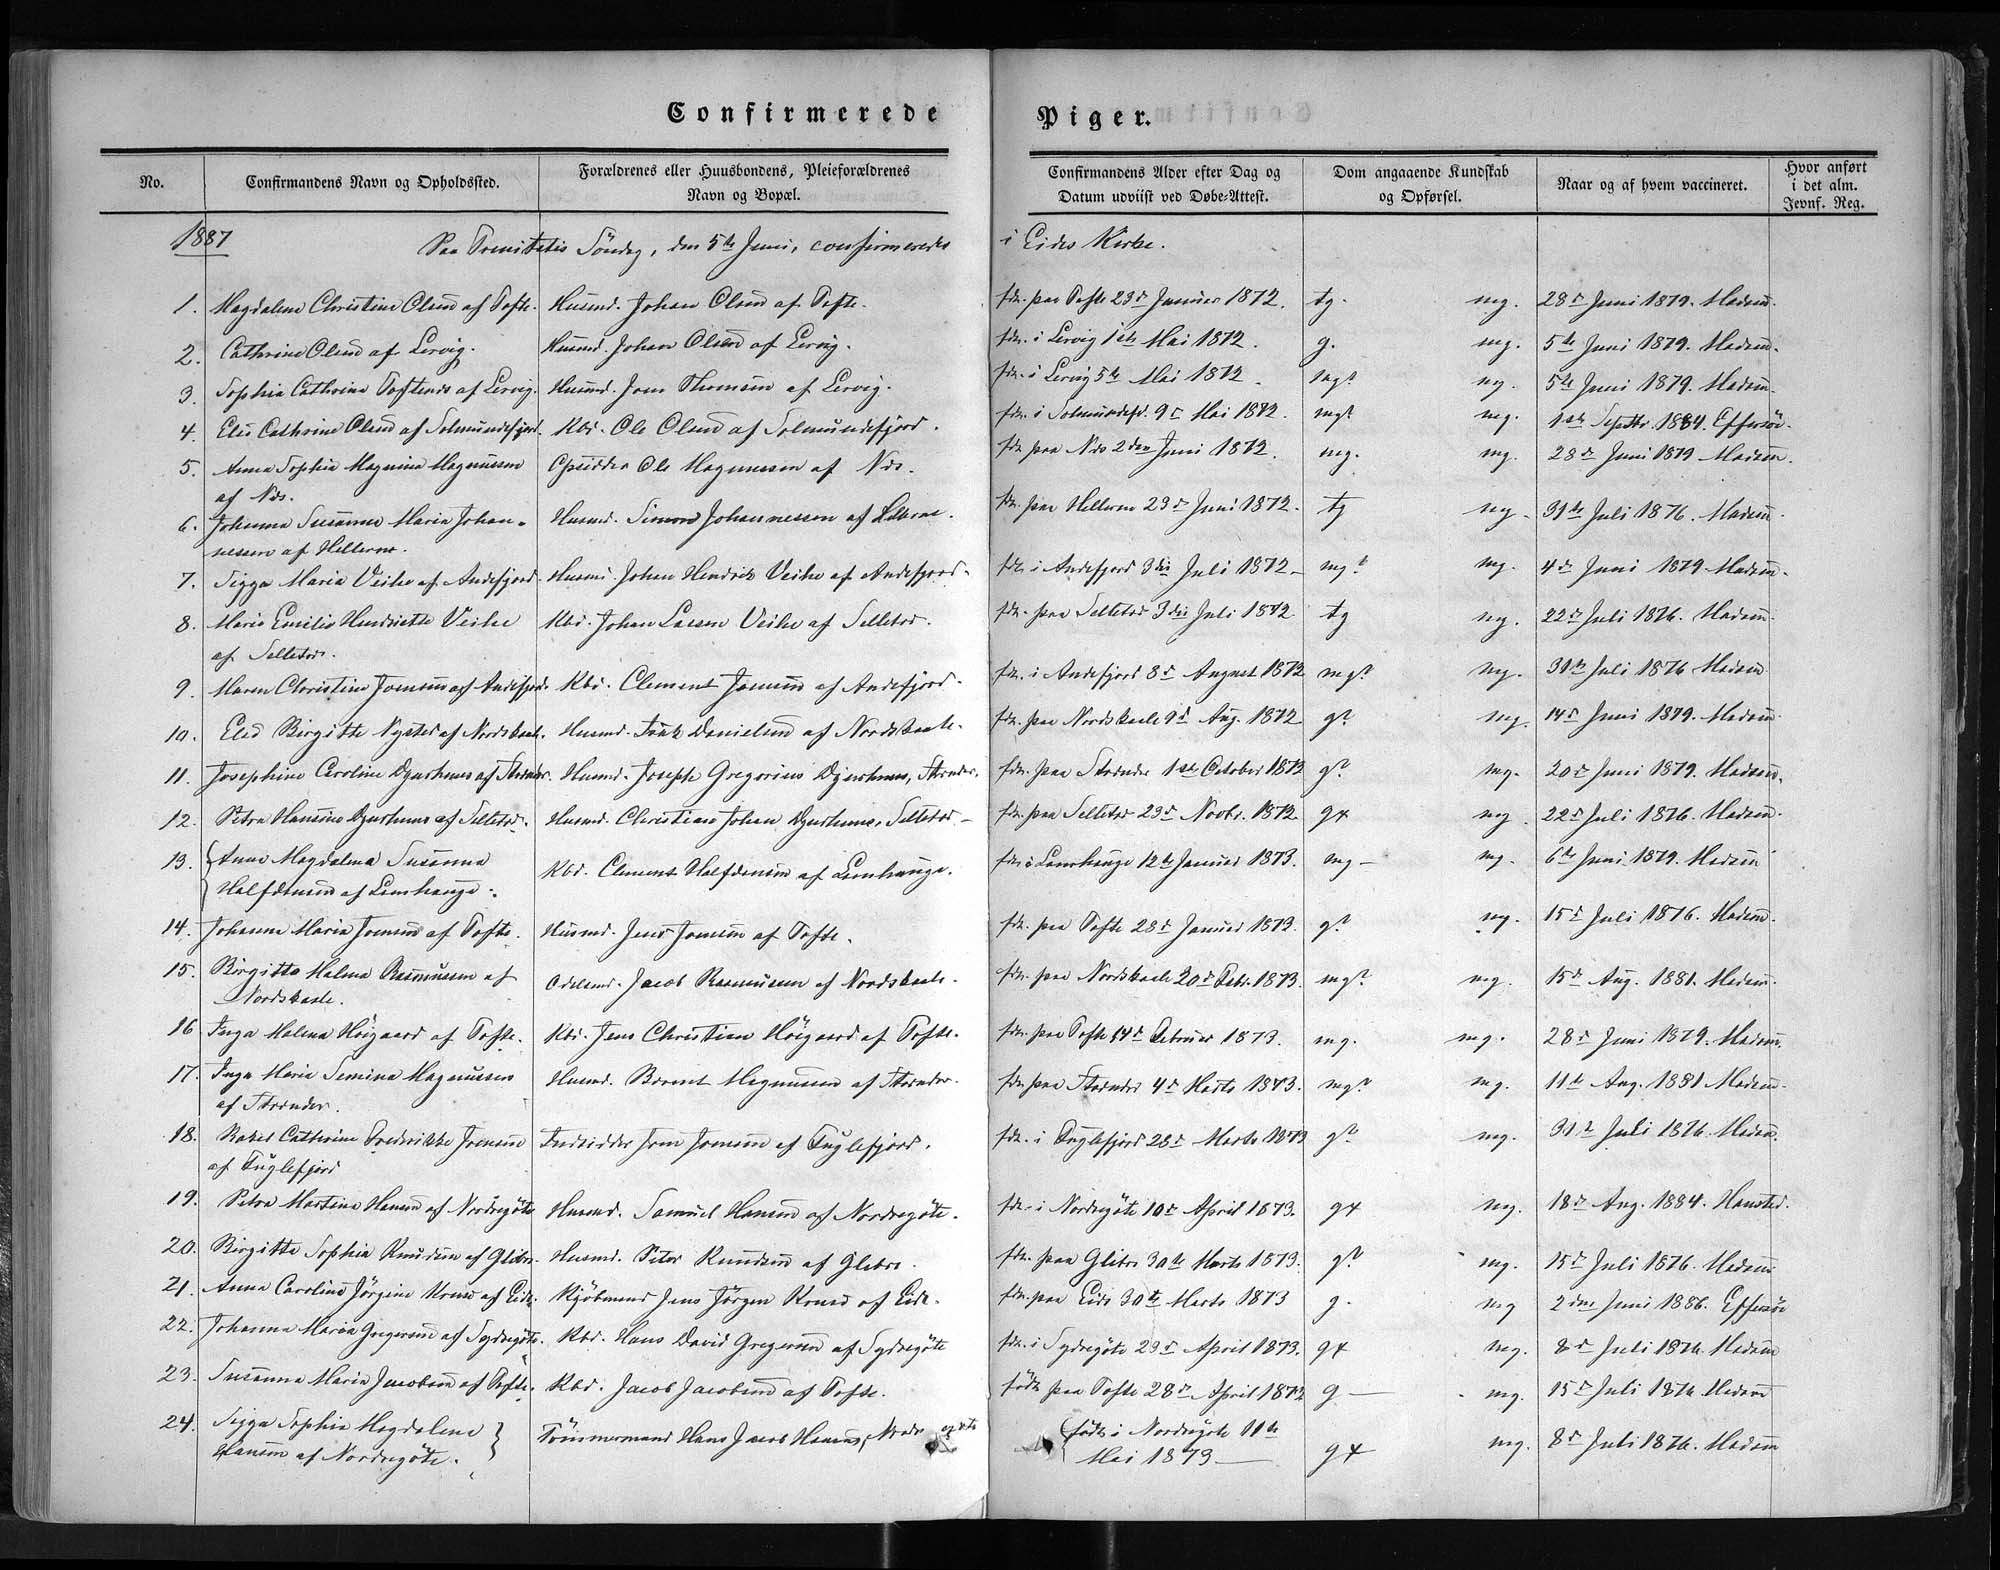 Confirmerede Piger.
No.
Confirmandens Navn og Opholdssted.
Forældrenes eller Huusbondens, Pleieforældrenes
Navn og Bopæl.
Confirmandens Alder efter Dag og
Datum udviist ved Døbe-Attest.
Dom angaaende Kundskab
og Opførsel.
Naar og af hvem vaccineret.
Hvor anført
i det alm.
Jevnf. Reg.
1887 Paa Trinitatis Søndag, den 5te Juni, confirmeredes i Eides Kirke.
1. Magdalena Christine Olsen af Tofte. Husmd. Johan Olsen af Tofte. fdt. paa Tofte 23d Januar 1872. tg. mg. 28d Juni 1879. Madsen.
2. Cathrine Olsen af Lervig. Husmd. Johan Olsen af Lervig. fdt. i Lervig 1ste Mai 1872. g. mg. 5te Juni 1879. Madsen.
3. Sophia Cathrina af Lervig. Husmd. Joen Thomsen af Lervig. fdt. i Lervig 5te Mai 1872. mg? mg. 5te Juni 1879. Madsen.
4. Elsa Cathrine Olsen af Solmundefjord. Kbd. Ole Olsen af Solmundefjord. fdt. i Solmundefd. 9d Mai 1872. mg? mg. 1ste Septbr. 1884. Effersøe.
5. Anna Sophia Magnina Magnussen Opsidder Ole Magnussen af Næs. fdt. paa Næs 2den Juni 1872. mg. mg. 28d Juni 1879 Madsen.
af Næs.
6. Johanna Susanna Maria Johan- Husmd. Simon Johannessen af Hellerne. fdt. paa Hellerne 23d Juni 1872. tg mg. 31te Juli 1876. Madsen.
nessen af Hellerne.
7. Sigga Maria Veihe af Andefjord. Husmd. Johan Hendrik Veihe af Andefjord. fdt. i Andefjord 3die Juli 1872 mg? mg. 4de Juni 1879 Madsen.
8. Maria Emilie Hendriette Veihe Kbd. Johan Larsen Veihe af Selletræ. fdt. paa Selletræ 3die Juli 1872 tg mg. 22d Juli 1876. Madsen.
af Selletræ.
9. Maren Christine Joensen af Andefjord. Kbd. Clement Joensen af Andefjord. fdt. i Andefjord 8d August 1872 mg? mg. 31te Juli 1876 Madsen
10. Elsa Birgitte Nysted af Nordskaale. Husmd. Danielsen af Nordskaale. fdt. paa Nordskaale 9d Aug. 1872 g? mg. 14d Juni 1879. Madsen
11. Josephine Caroline Djurhuus af Strænder. Husmd. Joseph Gregorius Djurhuus, Strænder. fdt. paa Strænder 1ste October 1872 g? mg. 20d Juni 1879. Madsen.
12. Petra Hansine Djurhuus af Selletræ. Husmd. Christian Johan Djurhuus, Selletræ fdt. paa Selletræ 23d Novbr. 1872. g+ mg. 22d Juli 1876. Madsen.
13. Anna Magdalena Susanna Kbd. Clement Halfdansen af Lamhauge. fdt. i Lamhauge 12te Januar 1873. mg mg. 6te Juni 1879. Madsen
Halfdansen af Lamhauge.
14. Johanna Maria Joensen af Tofte. Husmd. Jens Joensen af Tofte. fdt. paa Tofte 28d Januar 1873. g? mg. 15d Juli 1876. Madsen.
15. Birgitta Helena Rasmussen af Odelsmd. Jacob Rasmussen af Nordskaale. fdt. paa Nordskaale 20d Febr. 1873. mg? mg. 15d Aug. 1881. Madsen.
Nordskaale.
16 Inga Helena Höigaard af Tofte. Kbd. Jens Christian Höigaard af Tofte. fdt. paa Tofte 14d Februar 1873. mg. mg. 28d Juni 1879. Madsen.
17. Inga Maria Semina Magnussen Husmd. Magnussen af Strænder. fdt. paa Strænder 4d Marts 1873. mg? mg. 11te Aug. 1881 Madsen.
af Strænder.
18. Rakel Cathrine Frederikke Joensen Indsidder Joen Joensen af Fuglefjord. fdt. i Fuglefjord 28d Marts 1873 g? mg. 31te Juli 1876. Madsen.
af Fuglefjord
19. Petra Martina Hansen af Nordregöte Husmd. Samuel Hansen af Nordregöte. fdt. i Nordregöte 10d April 1873. g+ mg. 18d Aug. 1884. Hansted.
20. Birgitte Sophia Knudsen af Glibre. Husmd. Peter Knudsen af Glibre. fdt. paa Glibre 30te Marts 1873. g? mg. 15d Juli 1876. Madsen
21. Anna Caroline Jörgine Kruse af Eide. Kjöbmand Jens Jörgen Kruse af Eide. fdt. paa Eide 30te Marts 1873 g. mg 2den Juni 1886. Effersøe
22. Johanna Maria Gregersen af Sydregöte. Kbd. Hans David Gregersen af Sydregöte fdt. i Sydregöte 23d April 1873. g+ mg. 8d Juli 1876. Madsen
23. Susanna Maria Jacobsen af Tofte. Kbd. Jacob Jacobsen af Tofte. födt paa Tofte 28de April 1872 g mg. 15d Juli 1876 Madsen
24. Sigga Sophia Magdalena Tömmermand Hans Jacob Hansen, födt i Nordregöte 11te g+ mg. 8d Juli 1876. Madsen
Hansen af Nordregöte. Mai 1873